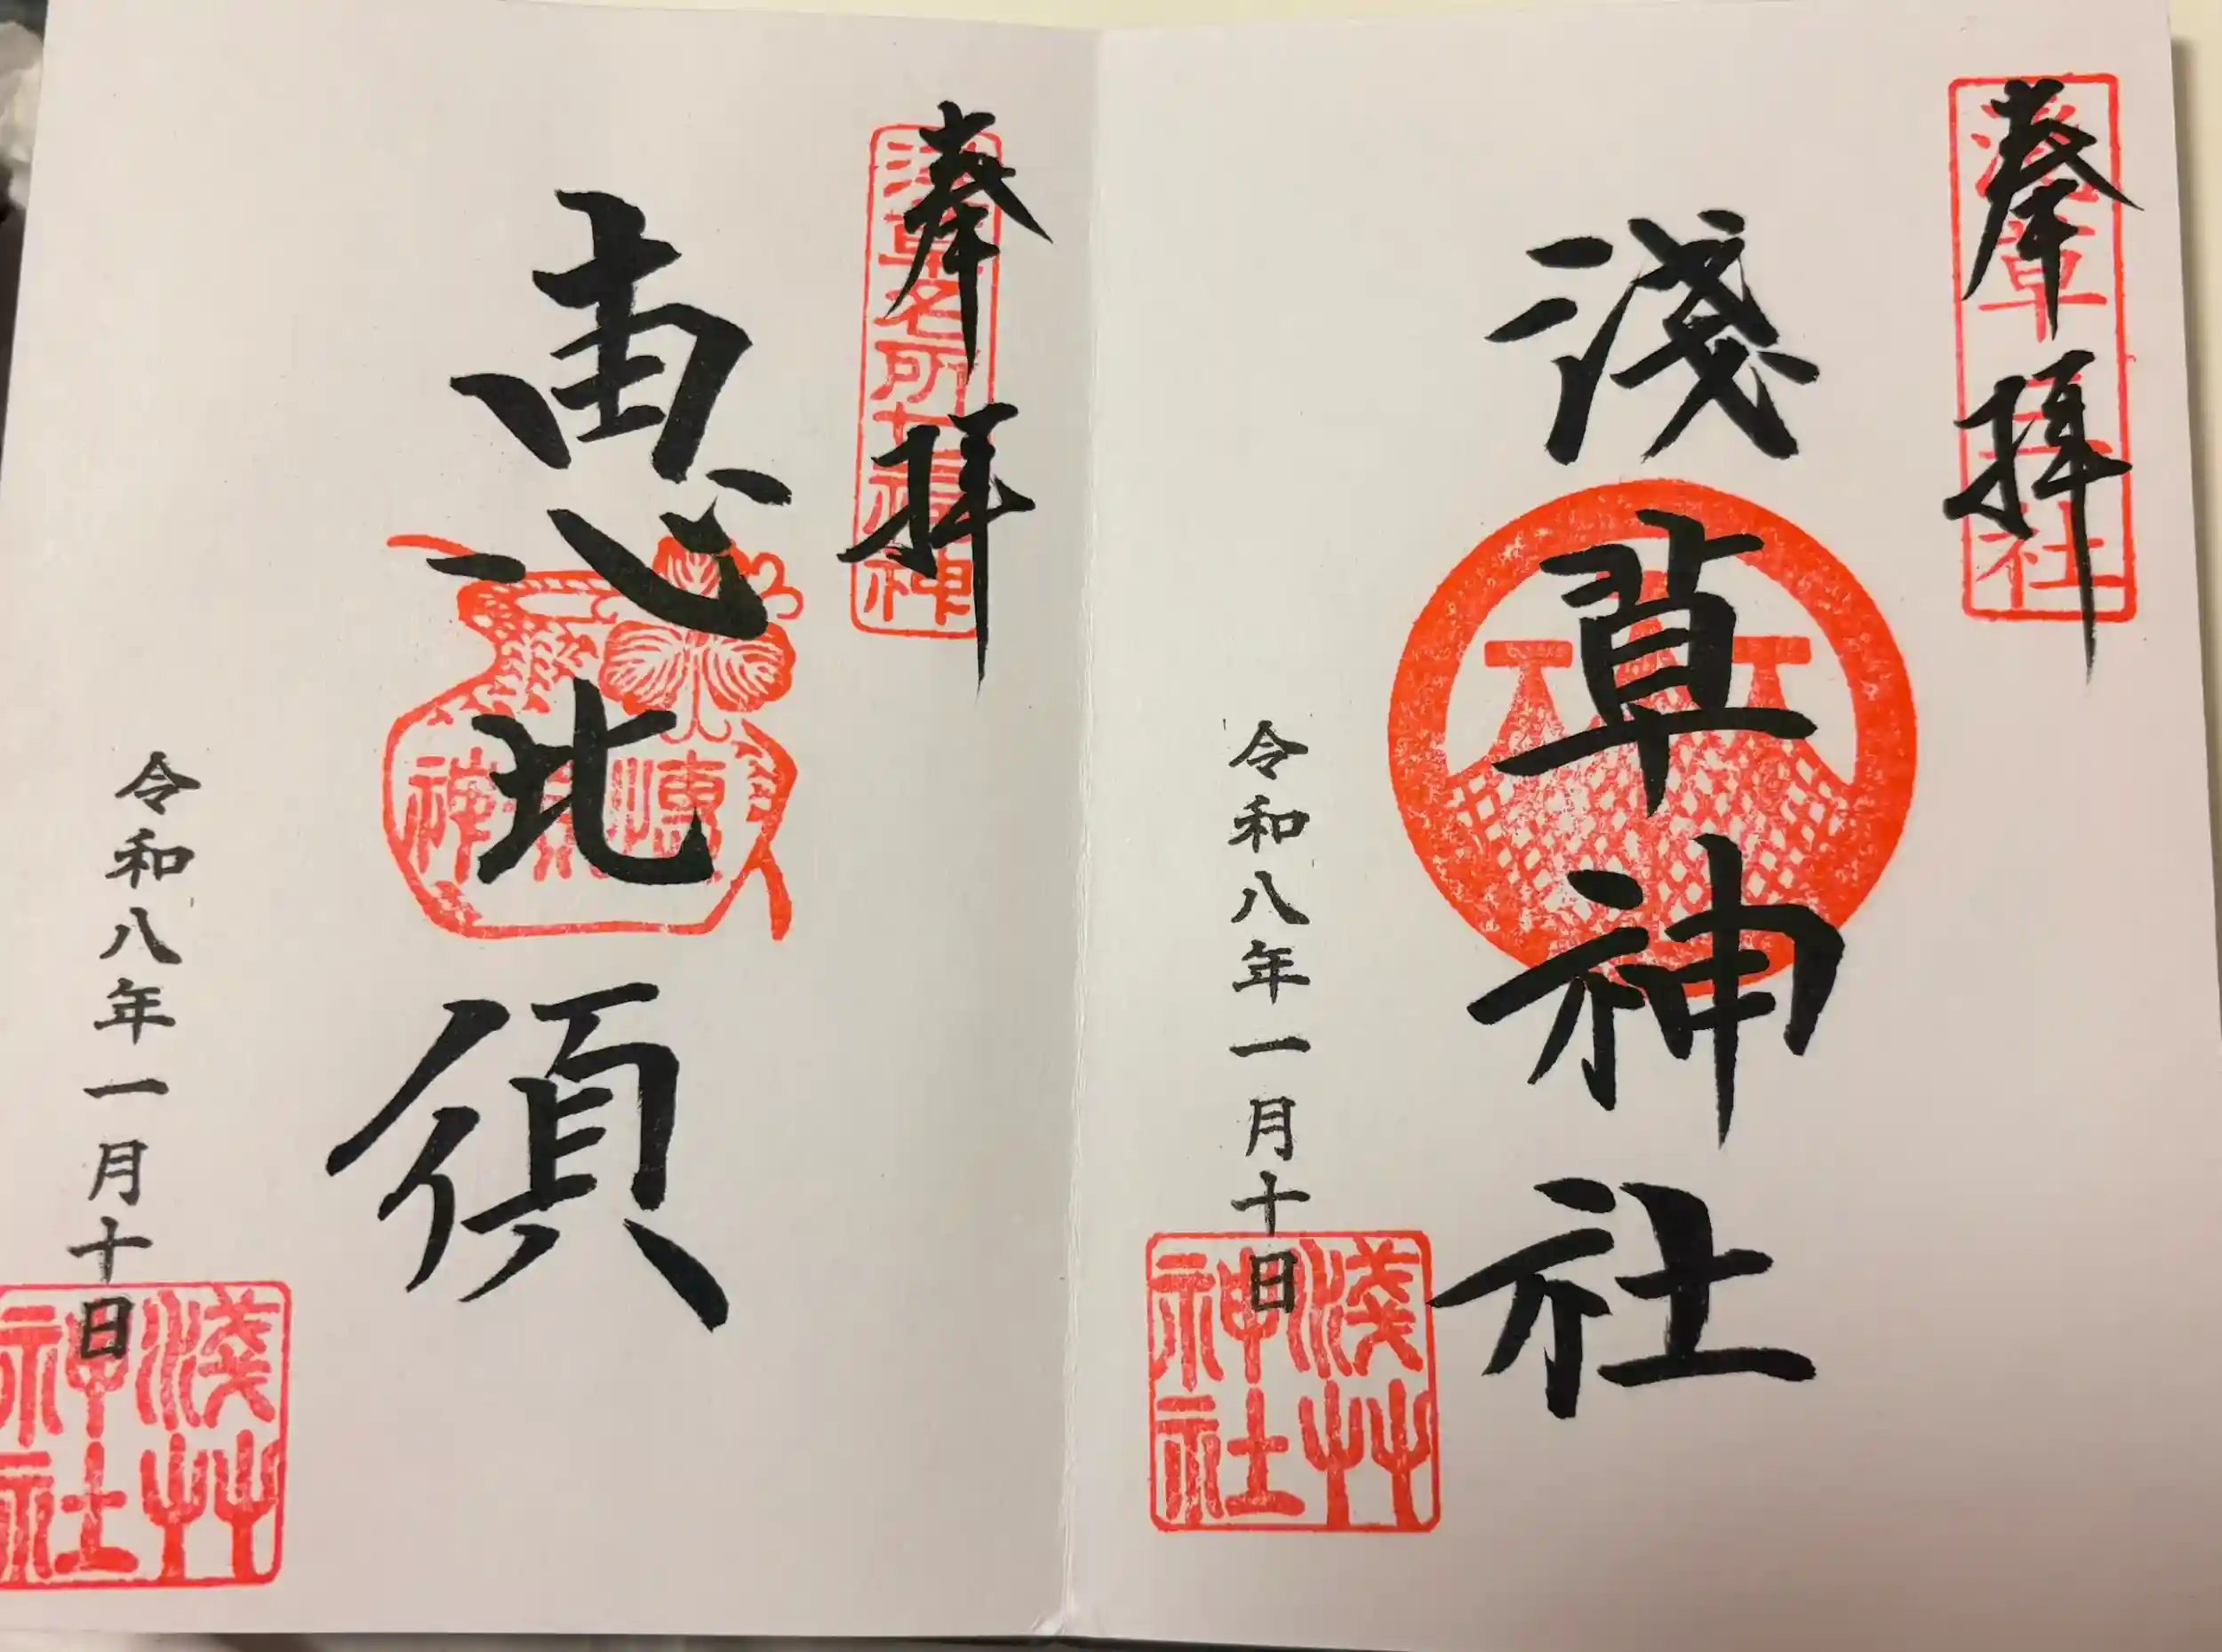 奉拝
浅草三社
淺草神社
令和八年一月十日
淺艸神社
奉拝
浅草名所七福神
恵比須
令和八年一月十日
淺艸神社